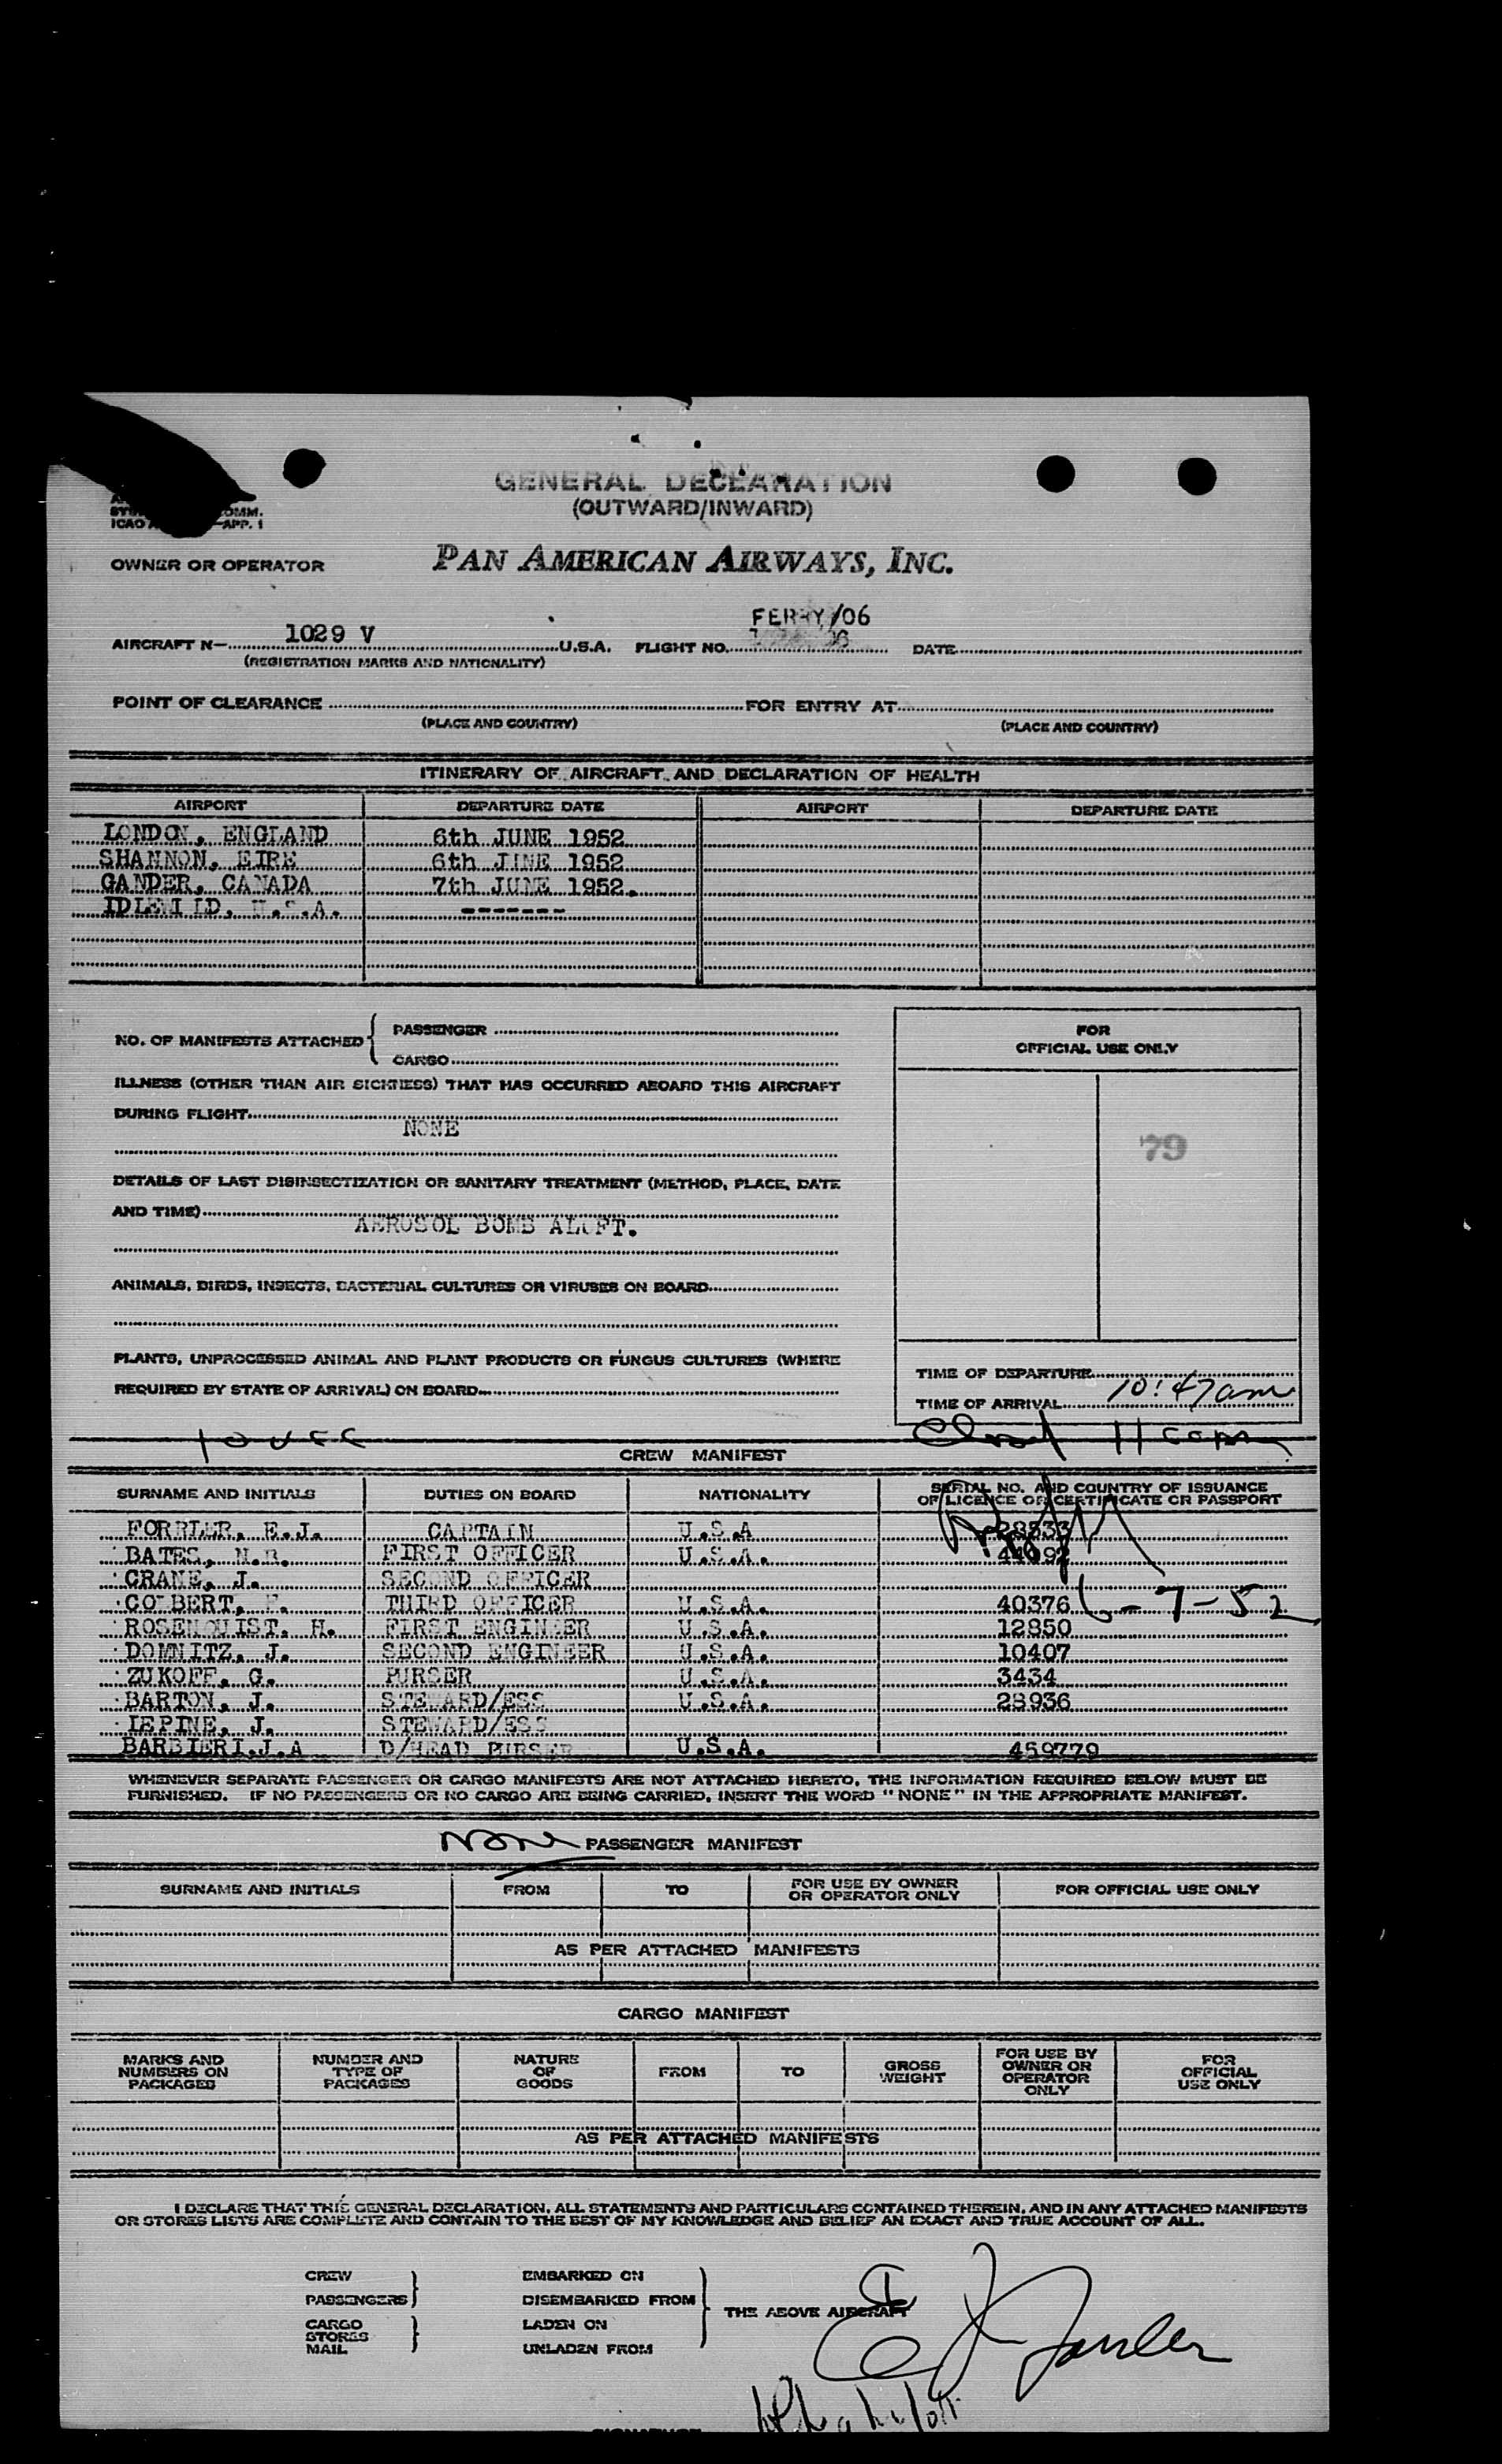 GENERAL DECLARATION
(OUTWARD/INWARD)
COMM.
ICAO APP. 1
OWNER OR OPERATOR PAN AMERICAN AIRWAYS, INC.
FERRY/06
AIRCRAFT N— 1029 V U.S.A. FLIGHT NO. DATE
(REGISTRATION MARKS AND NATIONALITY)
POINT OF CLEARANCE FOR ENTRY AT
(PLACE AND COUNTRY) (PLACE AND COUNTRY)
ITINERARY OF AIRCRAFT AND DECLARATION OF HEALTH
AIRPORT DEPARTURE DATE AIRPORT DEPARTURE DATE
LONDON, ENGLAND 6th JUNE 1952
SHANNON, EIRE 6th JUNE 1952
GANDER, CANADA 7th JUNE 1952.
IDLEWILD, U.S.A. -------
NO. OF MANIFESTS ATTACHED { PASSENGER
CARGO
FOR
OFFICIAL USE ONLY
ILLNESS (OTHER THAN AIR SICKNESS) THAT HAS OCCURRED ABOARD THIS AIRCRAFT
DURING FLIGHT
NONE
79
DETAILS OF LAST DISINSECTIZATION OR SANITARY TREATMENT (METHOD, PLACE, DATE
AND TIME)
AEROSOL BOMB ALOFT.
ANIMALS, BIRDS, INSECTS, BACTERIAL CULTURES OR VIRUSES ON BOARD
PLANTS, UNPROCESSED ANIMAL AND PLANT PRODUCTS OR FUNGUS CULTURES (WHERE
REQUIRED BY STATE OF ARRIVAL) ON BOARD
TIME OF DEPARTURE
TIME OF ARRIVAL 10:47am
CREW MANIFEST
SURNAME AND INITIALS DUTIES ON BOARD NATIONALITY SERIAL NO. AND COUNTRY OF ISSUANCE
OF LICENCE OR CERTIFICATE OR PASSPORT
E.J. CAPTAIN U.S.A 28533
BATES, FIRST OFFICER U.S.A. 44092
CRANE, J. SECOND OFFICER
COLBERT, THIRD OFFICER U.S.A. 40376 6-7-52
ROSENQUIST, H. FIRST ENGINEER U.S.A. 12850
DOMNITZ, J. SECOND ENGINEER U.S.A. 10407
ZUKOFF, G. PURSER U.S.A. 3434
BARTON, J. STEWARD/ESS U.S.A. 28936
LEPINE, J. STEWARD/ESS
BARBIERI.J.A D/HEAD PURSER U.S.A. 459779
WHENEVER SEPARATE PASSENGER OR CARGO MANIFESTS ARE NOT ATTACHED HERETO, THE INFORMATION REQUIRED BELOW MUST BE
FURNISHED. IF NO PASSENGERS OR NO CARGO ARE BEING CARRIED, INSERT THE WORD "NONE" IN THE APPROPRIATE MANIFEST.
None PASSENGER MANIFEST
SURNAME AND INITIALS FROM TO FOR USE BY OWNER
OR OPERATOR ONLY FOR OFFICIAL USE ONLY
AS PER ATTACHED MANIFESTS
CARGO MANIFEST
MARKS AND
NUMBERS ON
PACKAGES
NUMBER AND
TYPE OF
PACKAGES
NATURE
OF
GOODS
FROM
TO
GROSS
WEIGHT
FOR USE BY
OWNER OR
OPERATOR
ONLY
FOR
OFFICIAL
USE ONLY
AS PER ATTACHED MANIFESTS
I DECLARE THAT THIS GENERAL DECLARATION, ALL STATEMENTS AND PARTICULARS CONTAINED THEREIN, AND IN ANY ATTACHED MANIFESTS
OR STORES LISTS ARE COMPLETE AND CONTAIN TO THE BEST OF MY KNOWLEDGE AND BELIEF AN EXACT AND TRUE ACCOUNT OF ALL.
CREW EMBARKED ON
PASSENGERS DISEMBARKED FROM
THE ABOVE AIRCRAFT
CARGO LADEN ON
STORES
MAIL UNLADEN FROM
SIGNATURE